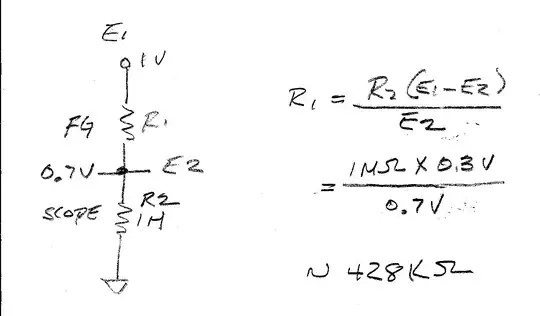 E1
1V
FG R1
0.7V E2
SCOPE R2
1M
R1 = R2 (E1-E2)
E2
= 1MΩ X 0.3V
0.7V
~ 428KΩ